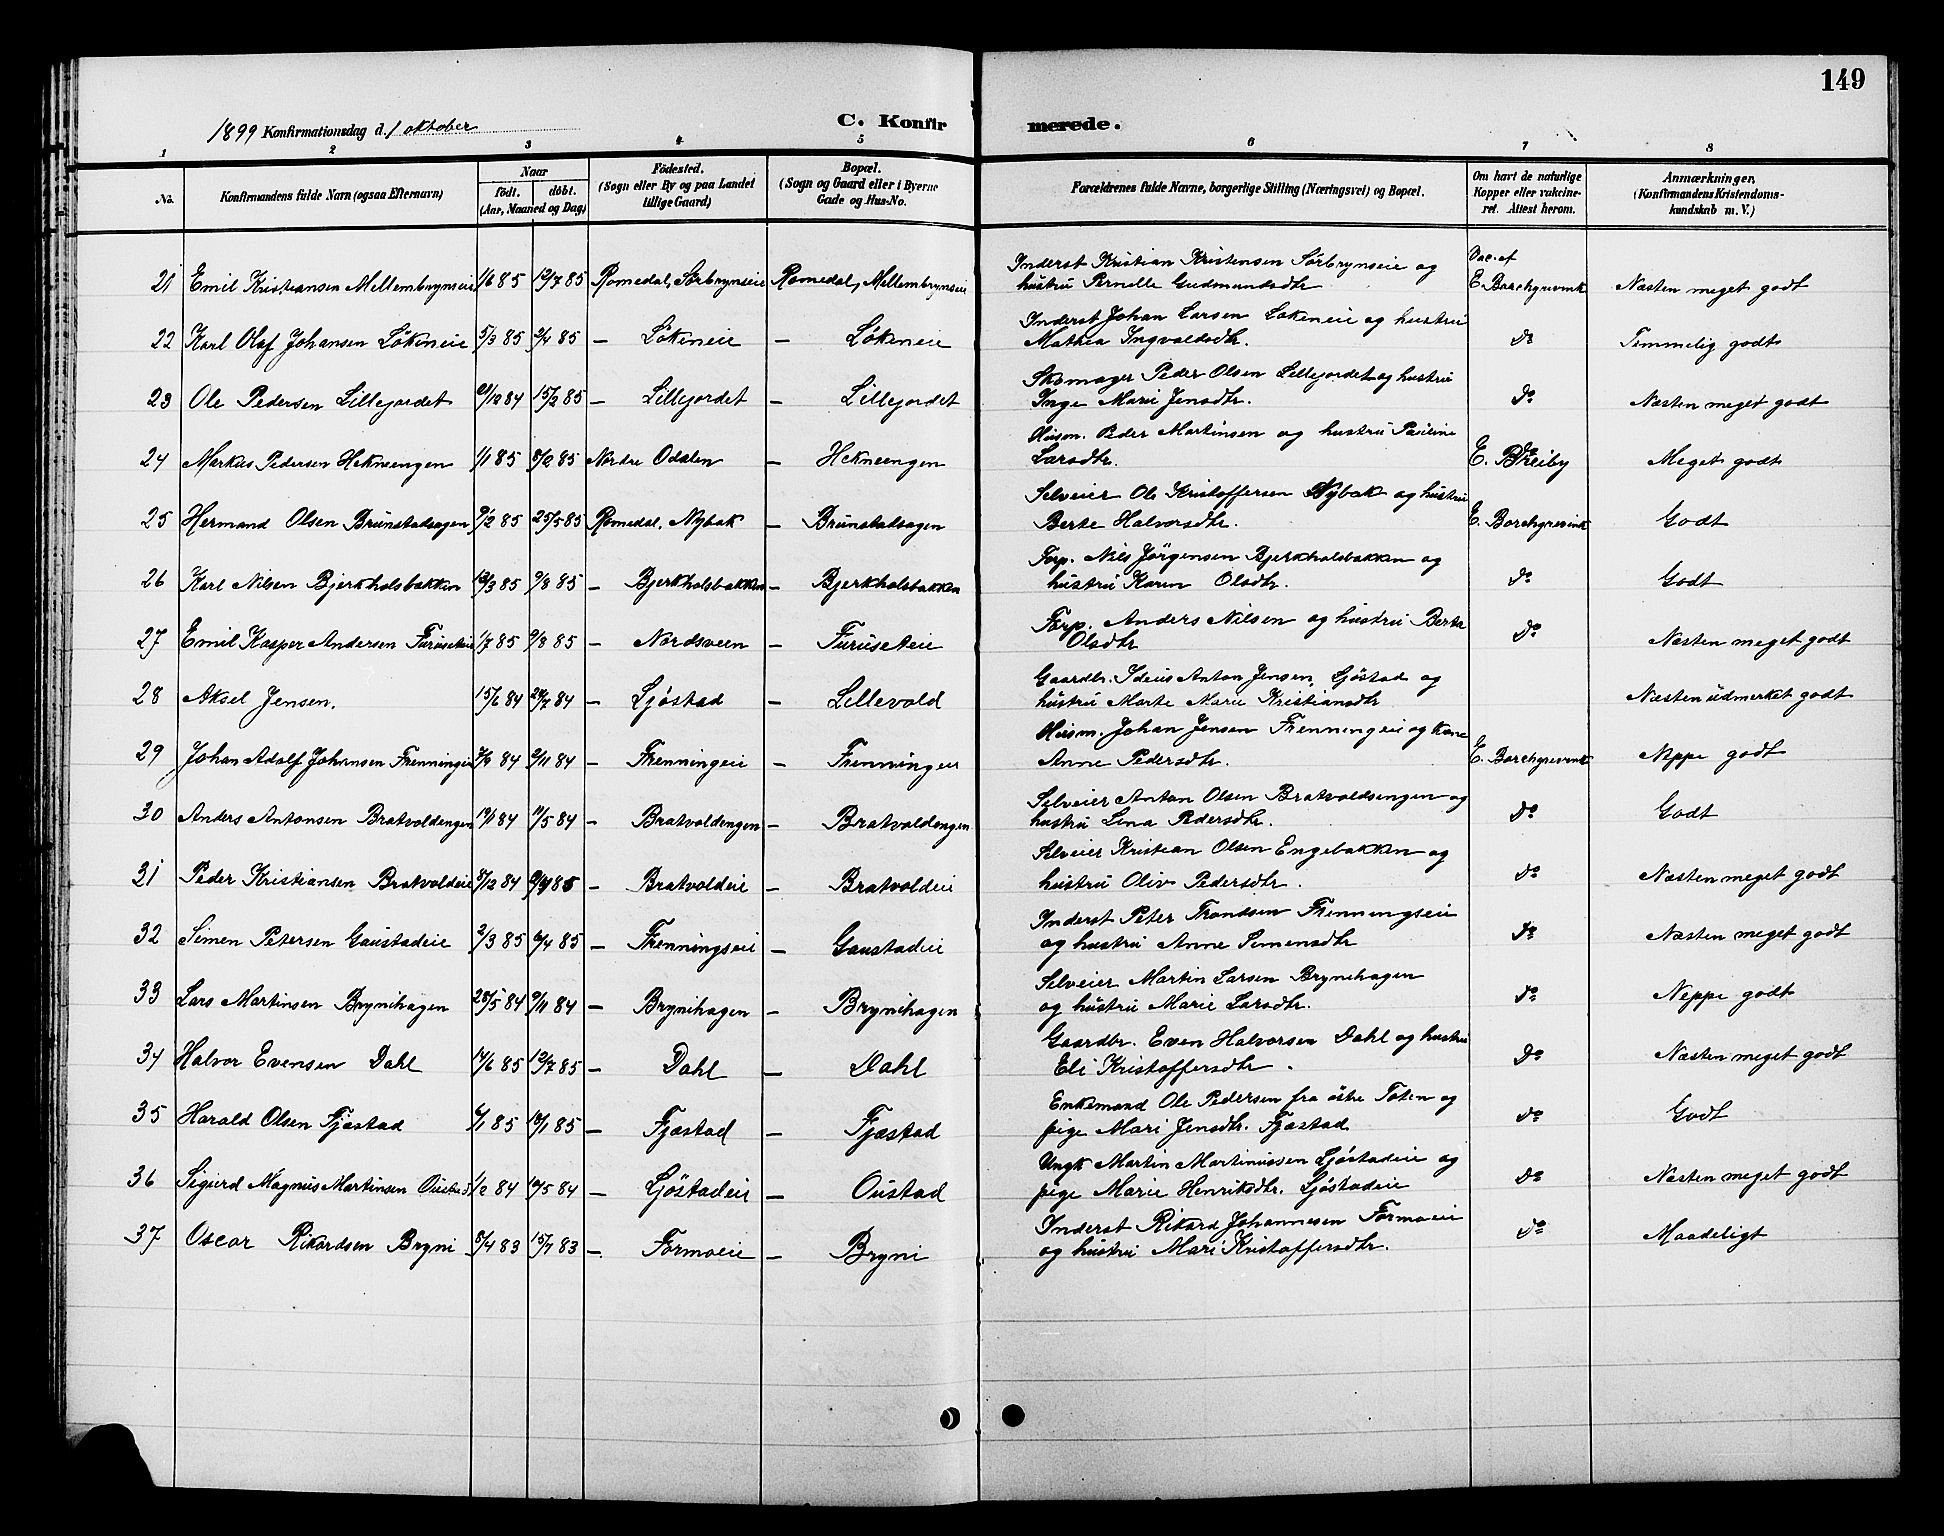 149
1899 Konfirmationsdag d. 1 oktober
C. Konfirmerede.
1 2 3 4 5 6 7 8
No. | Konfirmandens fulde Navn (ogsaa Efternavn) | Naar født. døbt. (Aar, Maaned og Dag) | Fødested. (Sogn eller By og paa Landet tillige Gaard) | Bopæl. (Sogn og Gaard eller i Byerne Gade og Hus-No. | Forældrenes fulde Navne, borgerlige Stilling (Næringsvei) og Bopæl. | Om havt de naturlige Kopper eller vakcineret. Attest herom. | Anmærkninger, (Konfirmandens Kristendomskundskab m. V.)
21 Emil Kristiansen Mellembrynseie 1/6 85 12/7 85 Romedal, Sørbrynseie Romedal, Mellembrynseie Inderst Kristian Kristensen Sørbrynseie og
hustru Pernille Gudmundsdtr Vac. af E. Borchgrevink Næsten meget godt
22 Karl Olaf Johansen Løkeneie 5/3 85 2/4 85 — Løkeneie — Løkeneie Inderst Johan Larsen Løkeneie og hustru
Mathea Ingvaldsdtr. do Temmelig godt
23 Ole Pedersen Lillejordet /12 84 15/2 85 — Lillejordet — Lillejordet Skomager Peder Olsen Lillejordet og hustru
Inge Marie Jensdtr. do Næsten meget godt
24 Markus Pedersen Hekneengen 1/1 85 8/2 85 Nordre Odalen — Hekneengen Husm. Peder Martinsen og hustru Pauline
Larsdtr. E. Meget godt
25 Hermand Olsen Brunstadsagen 9/2 85 25/5 85 Romedal, Nybak — Brunstadsagen Selveier Ole Kristoffersen Nybak og hustru
Berte Halvorsdtr. E. Borchgrevink Godt
26 Karl Nilsen Bjerkholsbakken /3 85 9/8 85 — Bjerkholsbakken — Bjerkholsbakken Forp. Nils Jørgensen Bjerkholsbakken og
hustru Karen Olsdtr. do Godt
27 Emil Kasper Andersen Furuseteie 1/7 85 9/8 85 — Nordsveen — Furuseteie Forp. Anders Nilsen og hustru Berte
Olsdtr do Næsten meget godt
28 Aksel Jensen. 15/6 84 20/7 84 — Ljøstad — Lillevold Gaardbr. Anton Jensen Ljøstad og
hustru Marte Marie Kristiansdtr Næsten udmerket godt
29 Johan Adolf Johansen Frenningeie 7/9 84 2/11 84 — Frenningeie — Frenningeie Husm. Johan Jensen Frenningeie og kone
Anne Pedersdtr. E. Borchgrevink Neppe godt
30 Anders Antonsen Bratvoldengen 19/1 84 11/5 84 — Bratvoldengen — Bratvoldengen Selveier Anton Olsen Bratvoldsengen og
hustru Lina Pedersdtr. do Godt
31 Peder Kristiansen Bratvoldeie /12 84 85 — Bratvoldeie — Bratvoldeie Selveier Kristian Olsen Engebakken og
hustru Oliv Pedersdtr. do Næsten meget godt
32 Simen Petersen Gaustadeie 2/3 85 6/4 85 — Frenningseie — Gaustadeie Inderst Peter Trondsen Frenningseie
og hustru Anne Simensdtr do Næsten meget godt
33 Lars Martinsen Brynihagen 28/5 84 9/11 84 — Brynihagen — Brynihagen Selveier Martin Larsen Brynihagen
og hustru Marie Larsdtr. do Neppe godt
34 Halvor Evensen Dahl 14/6 85 12/7 85 — Dahl — Dahl Gaardbr. Even Halvorsen Dahl og hustru
Eli Kristoffersdtr. Do Næsten meget godt
35 Harald Olsen Fjæstad 6/1 85 18/1 85 — Fjæstad — Fjæstad Enkemand Ole Pedersen fra østre Toten og
pige Mari Jensdtr. Fjæstad do Godt
36 Sigurd Magnus Martinsen Oustad 1/2 84 /5 84 — Ljøstadeie — Oustad Ungk Martin Martinussen Ljøstadeie og
pige Marie Henriksdtr. Ljøstadeie do Næsten meget godt
37 Oscar Rikardsen Bryni 8/4 83 15/7 83 — Formoeie — Bryni Inderst Rikard Johannesen Formoeie
og hustru Mari Kristoffersdtr. do Maadeligt